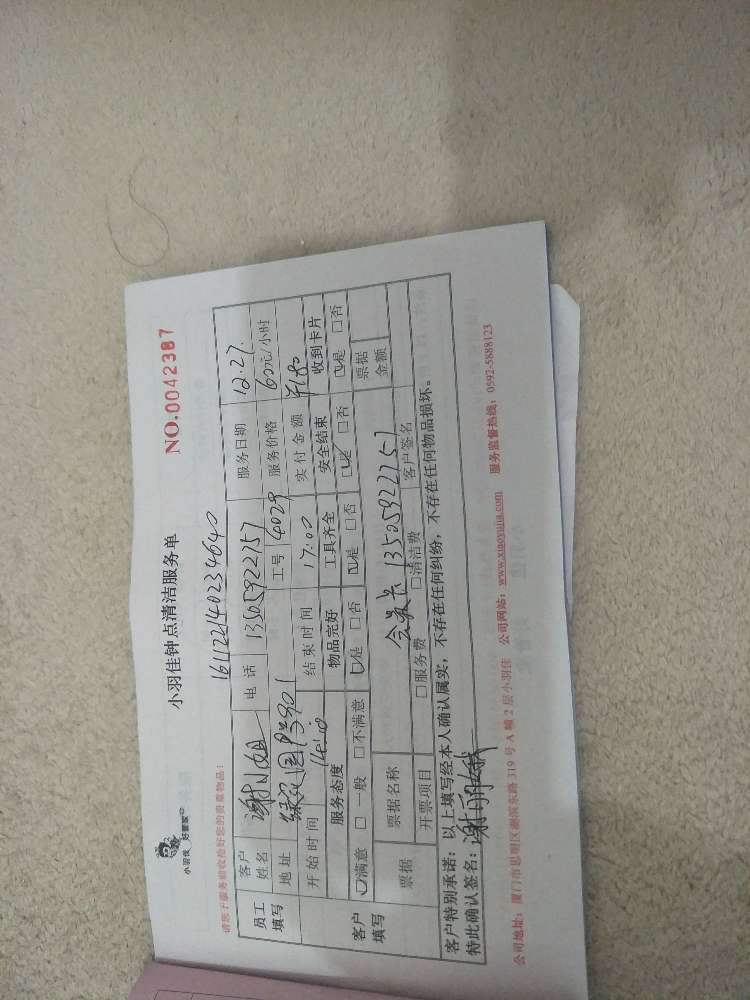 小羽佳 好管家
小羽佳钟点清洁服务单
NO.0042387
请您于服务前收拾好您的贵重物品:
161122140234640
员工填写 客户姓名 谢小姐 电话 13505922157 服务日期 12.27.
地址 绿苑 901 工号 4029 服务价格 60元/小时
开始时间 14:00 结束时间 17:00 实付金额 ¥180
客户填写 服务态度 物品完好 工具齐全 安全结束 收到卡片
☑满意 □一般 □不满意 ☑是 □否 ☑是 □否 ☑是 □否 ☑是 □否
票据 票据名称 会员卡 13505922157 票据金额
开票项目 □服务费 □清洁费 客户签名
客户特别承诺:以上填写经本人确认属实,不存在任何纠纷,不存在任何物品损坏。
特此确认签名:谢丽
公司地址:厦门市思明区湖滨东路319号A幢2层小羽佳 公司网站:www.xiaoyujia.com 服务监督热线:0592-5888123